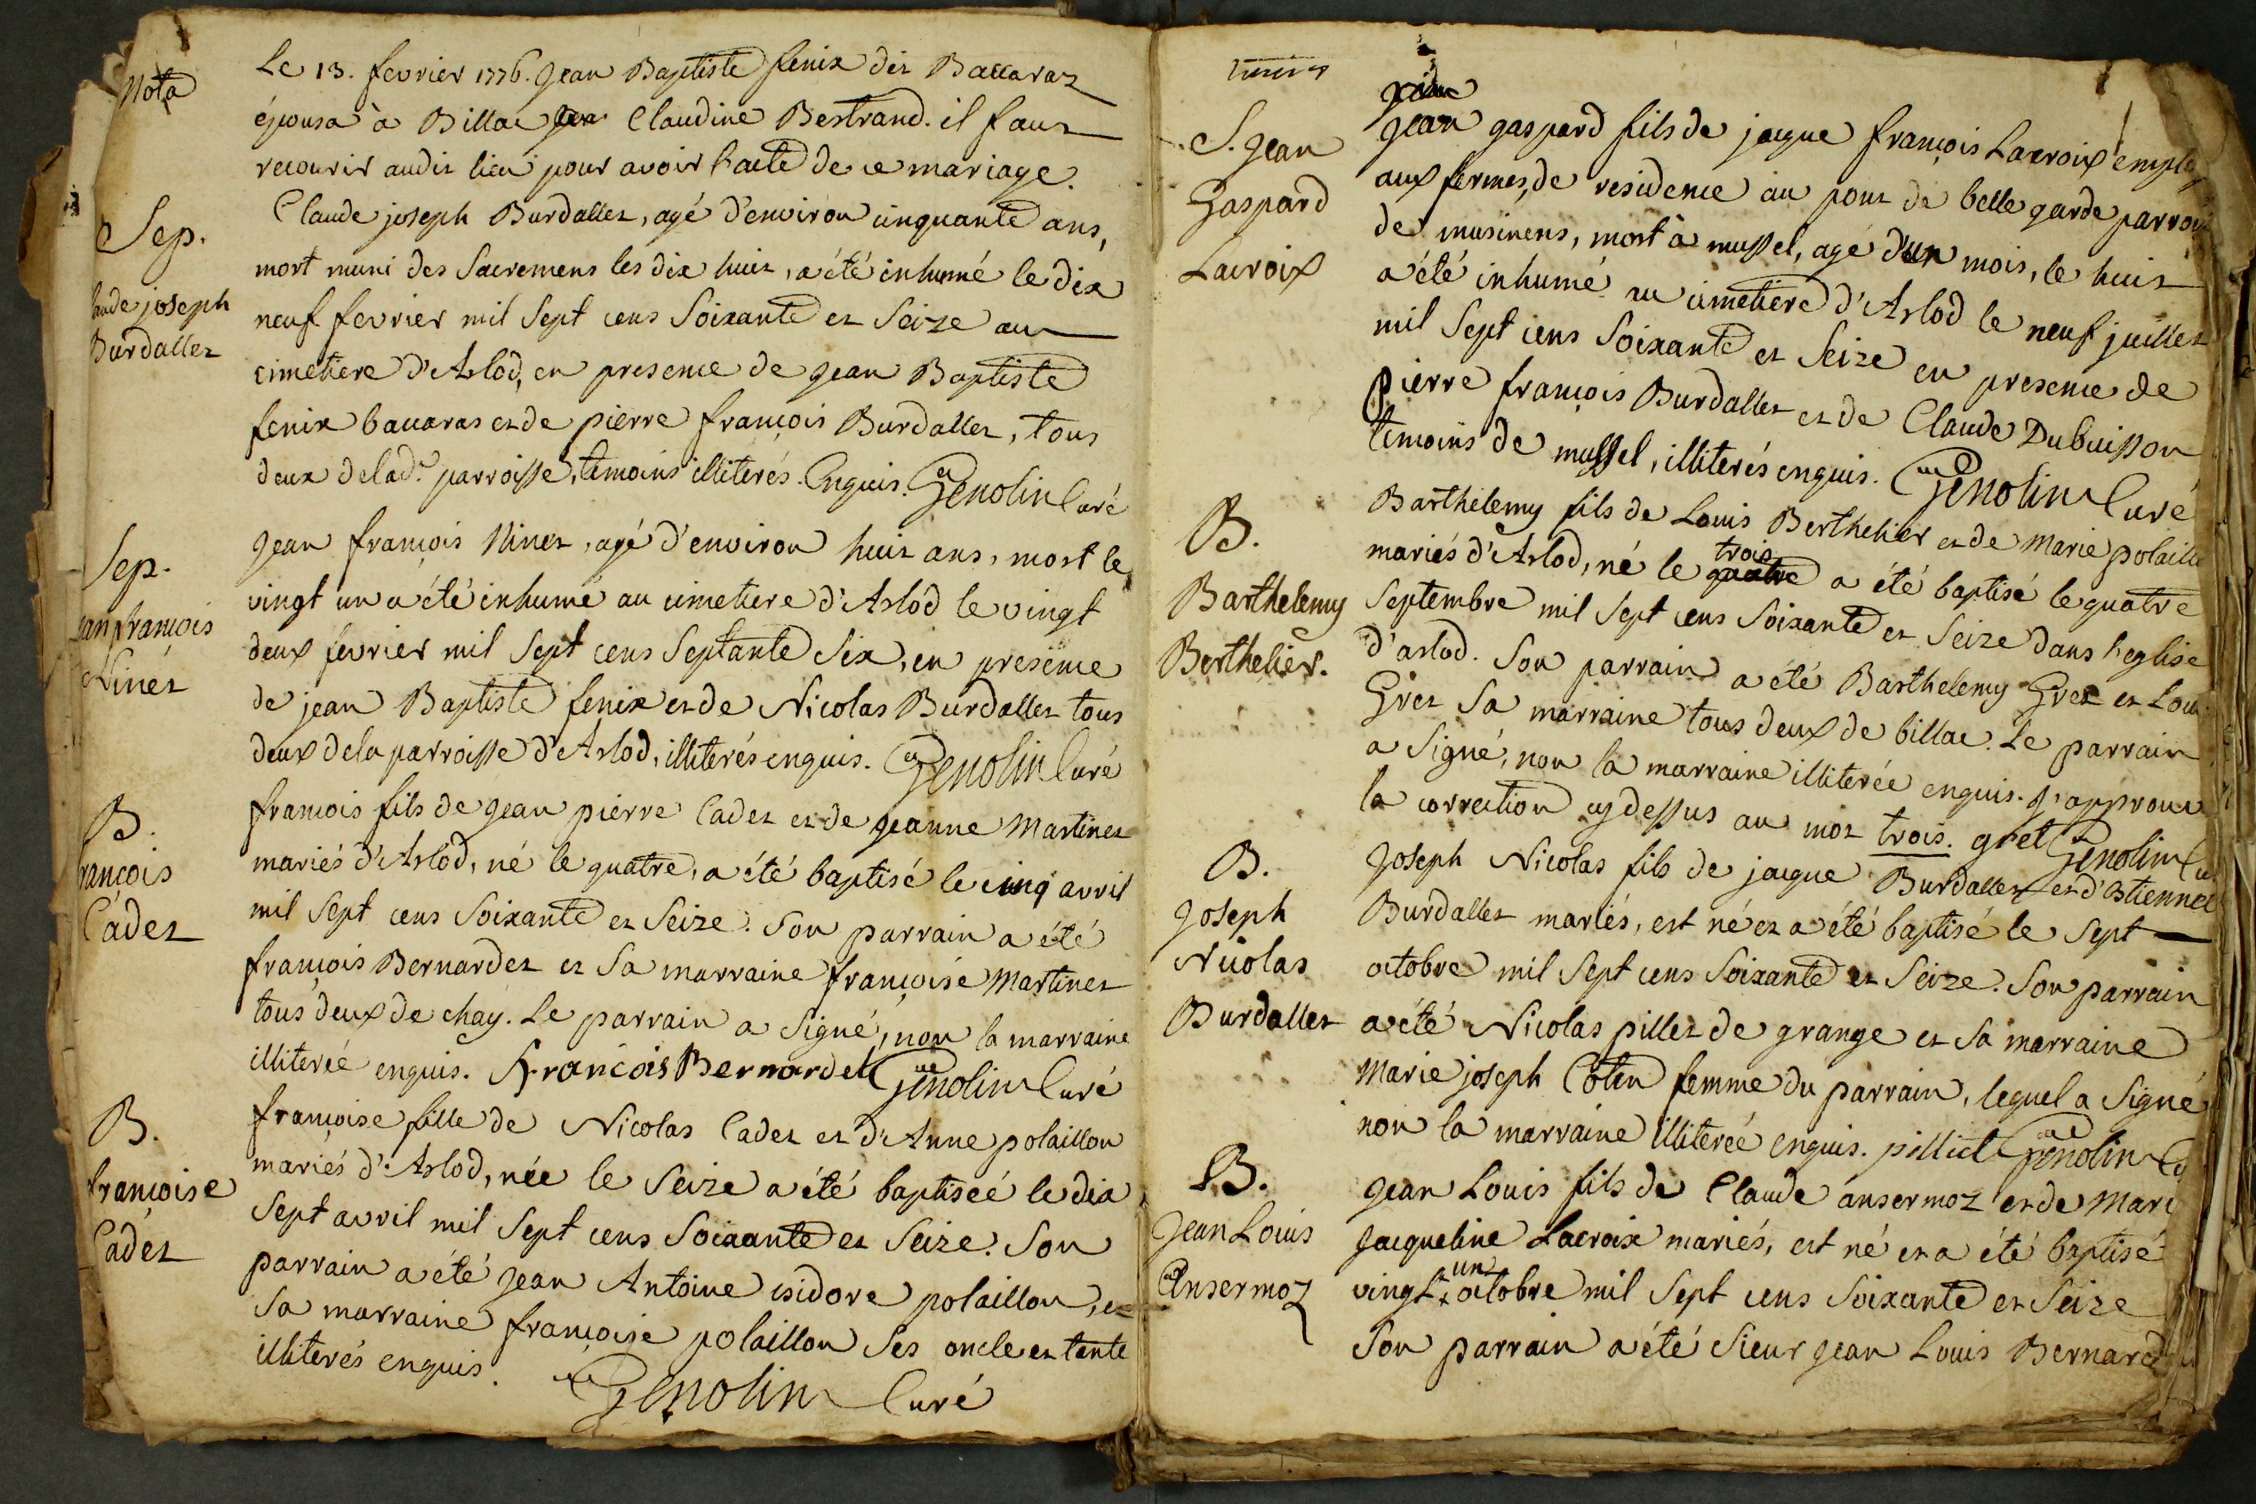 Nota
Le 13. fevrier 1776. Jean Baptiste fenix dit Baccaraz
épousa à Billac Claudine Bertrand. il faut
recourir audit lieu pour avoir l'acte de ce mariage.
Sep.
laude joseph
Burdallet
Claude joseph Burdallet, agé d'environ cinquante ans,
mort muni des Sacremens les dix huit, a été inhumé le dix
neuf fevrier mil Sept cens Soixante et Seize au
cimetiere d'Arlod, en presence de Jean Baptiste
fenix baccaras et de pierre françois Burdallet, tous
deux de lad.e parroisse, temoins illiterés. Enquis. Genolin Curé
Sep.
ean françois
Ninet
Jean françois Ninet, agé d'environ huit ans, mort le
vingt un a été inhumé au cimetiere d'Arlod le vingt
deux fevrier mil Sept cens Septante Six, en presence
de jean Baptiste fenix et de Nicolas Burdallet tous
deux de la parroisse d'Arlod, illiterés enquis. Genolin Curé
B.
rançois
Cadet
françois fils de Jean pierre Cadet et de Jeanne Martinet
mariés d'Arlod, né le quatre, a été baptisé le cinq avril
mil Sept cens Soixante et Seize. Son parrain a été
françois Bernardet et Sa marraine françoise Martinet
tous deux de chay. Le parrain a Signé, non la marraine
illiterée enquis. François Bernardet Genolin Curé
B.
françoise
Cadet
françoise fille de Nicolas Cadet et d'Anne polaillon
mariés d'Arlod, née le Seize a été baptiseé le dix
Sept avril mil Sept cens Soixante et Seize. Son
parrain a été Jean Antoine isidore polaillon, et
Sa marraine françoise polaillon Ses oncle et tente
illiterés enquis. Genolin Curé
S. Jean
Gaspard
Lacroix
Jean gaspard fils de jacque françois Lacroix emplo
aux fermes, de residence au pont de belle garde parrois
de musinens, mort à mussel, agé d'un mois, le huit
a été inhumé au cimetiere d'Arlod le neuf juillet
mil Sept cens Soixante et Seize en presence de
pierre françois Burdallet et de Claude Dubuisson
temoins de mussel, illiterés enquis. Genolin Curé
B.
Barthelemy
Berthelier.
Barthelemy fils de Louis Berthelier et de Marie polaill
mariés d'Arlod, né le quatre trois a été baptisé le quatre
Septembre mil Sept cens Soixante et Seize dans l'eglise
d'arlod. Son parrain a été Barthelemy Gret et Lou
Gret Sa marraine tous deux de billac. Le parrain
a Signé, non la marraine illiterée enquis. J'approuve
la correction cy dessus au mot trois. gret Genolin Cu
B.
Joseph
Nicolas
Burdallet
Joseph Nicolas fils de jacque Burdallet et d'Estiennete
Burdallet mariés, est né et a été baptisé le Sept
octobre mil Sept cens Soixante et Seize. Son parrain
a été Nicolas pillet de grange et Sa marraine
Marie joseph Coten femme du parrain, lequel a Signé
non la marraine illitereé enquis. pilliet Genolin Cu
B.
Jean Louis
Ansermoz
Jean Louis fils de Claude ansermoz et de Mari
Jacqueline Lacroix mariés, est né et a été baptisé
vingt un octobre mil Sept cens Soixante et Seize
Son parrain a été Sieur Jean Louis Bernard